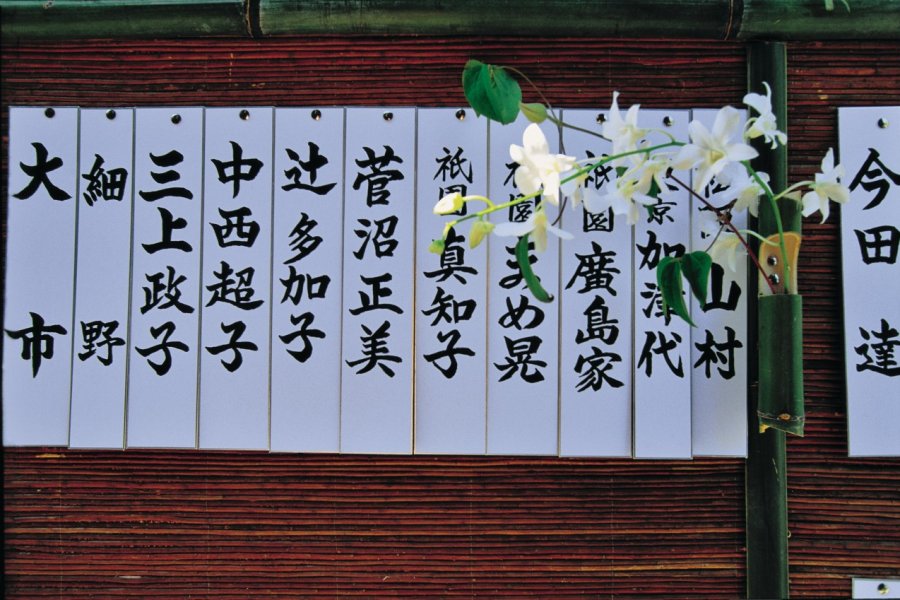 今田達
山村
京加津代
祇園廣島家
祇園まめ晃
祇園真知子
菅沼正美
辻多加子
中西超子
三上政子
細野
大市